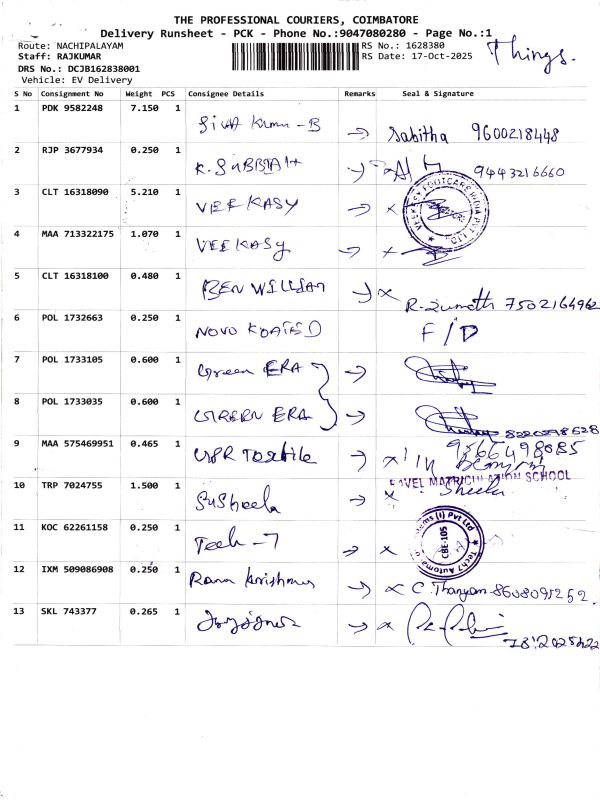 THE PROFESSIONAL COURIERS, COIMBATORE
Delivery Runsheet - PCK - Phone No.:9047080280 - Page No.:1
Route: NACHIPALAYAM RS No.: 1628380 Things.
Staff: RAJKUMAR RS Date: 17-Oct-2025
DRS No.: DCJB162838001
Vehicle: EV Delivery
S No Consignment No Weight PCS Consignee Details Remarks Seal & Signature
1 PDK 9582248 7.150 1 Siva Kumar - B → Sabitha 9600218448
2 RJP 3677934 0.250 1 K. SUBBIAH → 9443216660
3 CLT 16318090 5.210 1 VEEKASY → x VEEKESY FOOTCARE INDIA PVT LTD
4 MAA 713322175 1.070 1 VEEKASY → x
5 CLT 16318100 0.480 1 BEN WILLIAM → x
6 POL 1732663 0.250 1 NOVO F/D
7 POL 1733105 0.600 1 Green ERA →
8 POL 1733035 0.600 1 GREEN ERA →
9 MAA 575469951 0.465 1 Textile → x 9566498085
MATRICULATION SCHOOL
10 TRP 7024755 1.500 1 Susheela → x Sheela
11 KOC 62261158 0.250 1 Tech - 7 → x Tech7 Automa ems (I) Pvt Ltd CBE-105
12 IXM 509086908 0.250 1 Rama Krishnan → x 8608091252.
13 SKL 743377 0.265 1 → x